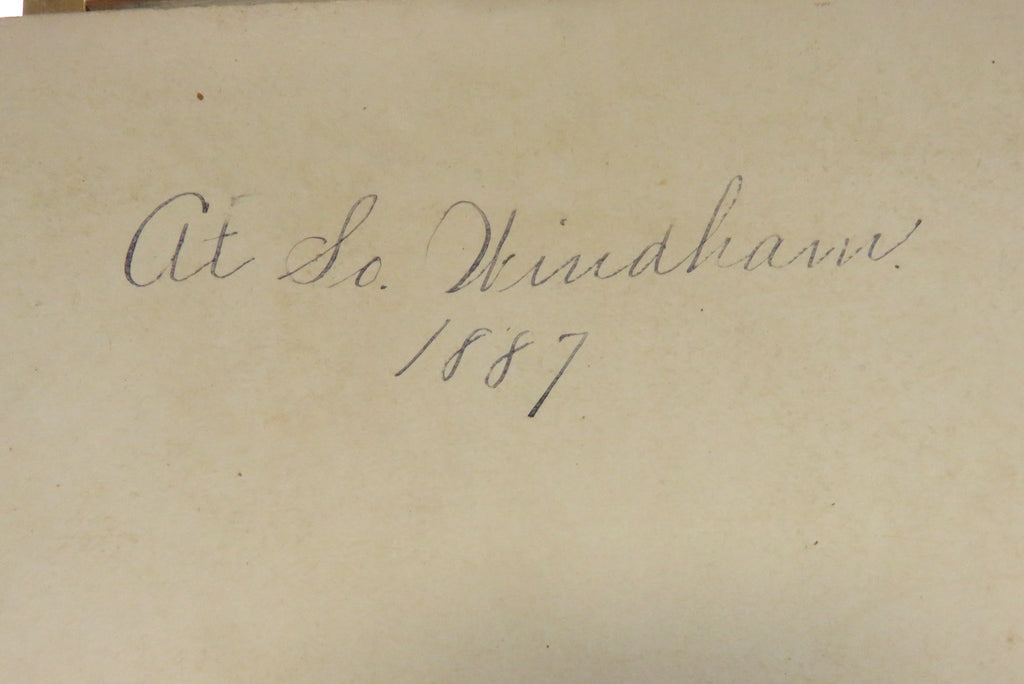 At So. Windham.
1887